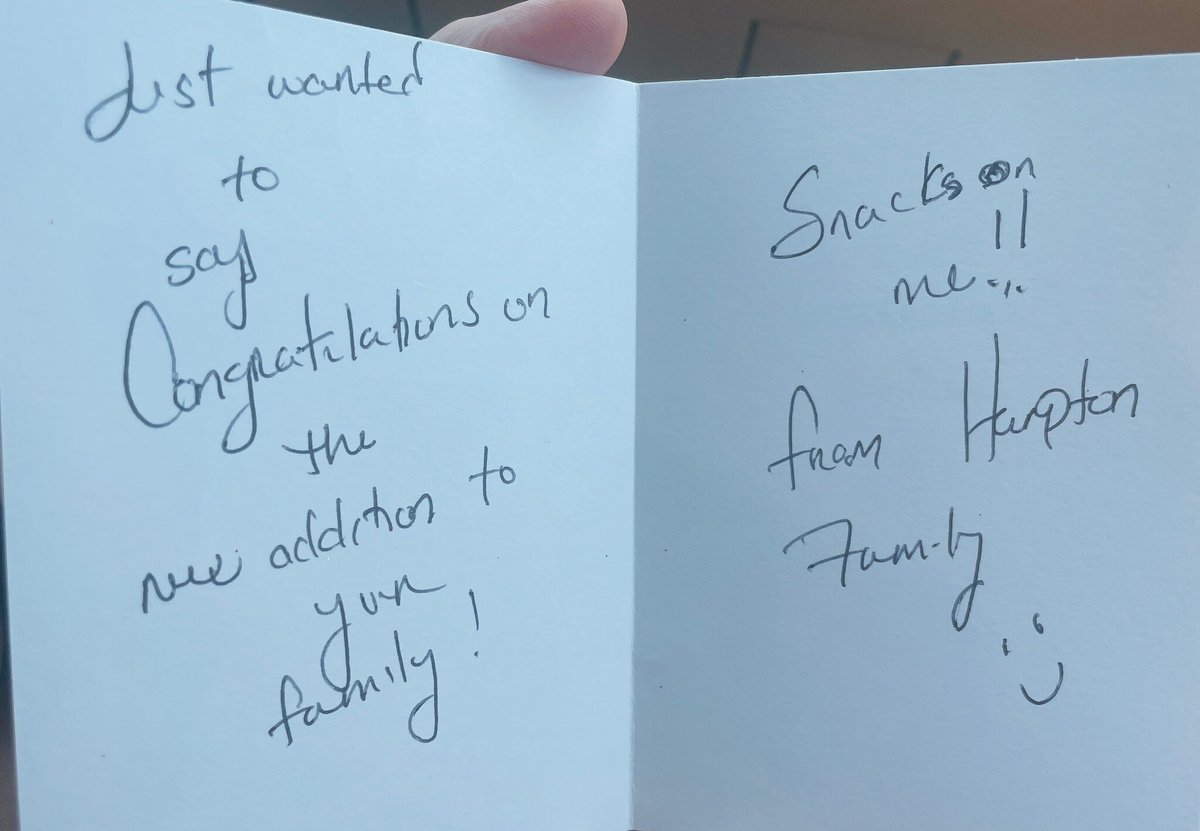 Just wanted
to
say
Congratulations on
the
new addition to
your
family!
Snacks on
me..!!
from Hampton
Family
:)